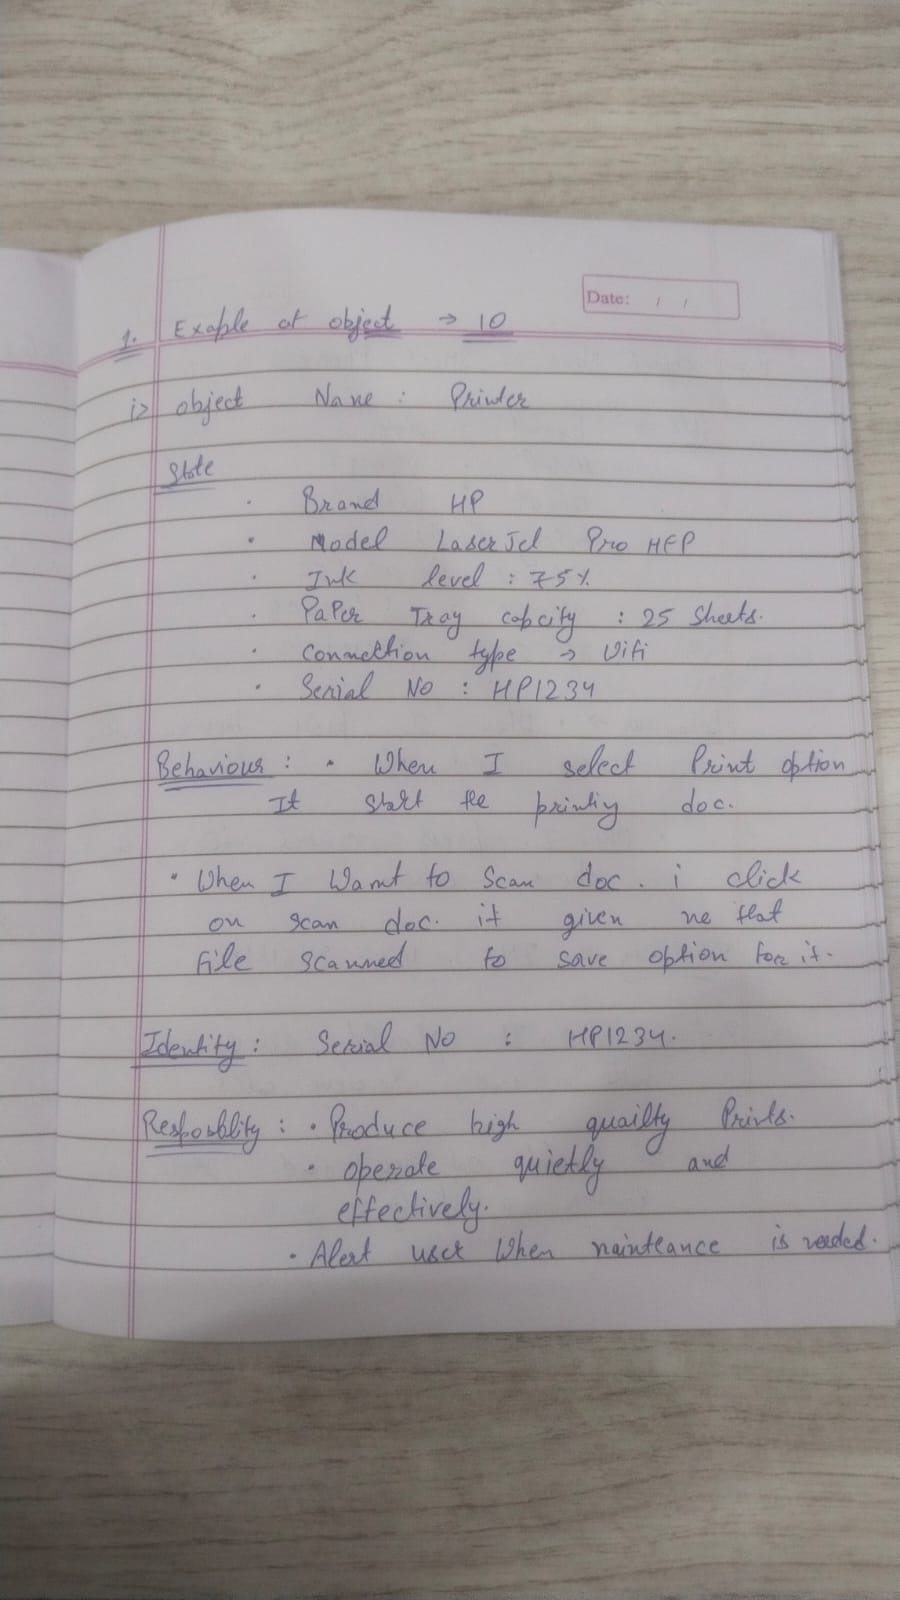 Date: / /
1. Exaple of object → 10
i> object Name : Printer
State
· Brand HP
· Model LaserJet Pro MFP
· Ink level : 75%
· PaPer Tray capcity : 25 Sheets.
· Connection type → Wifi
· Serial No : HP1234
Behaviour : · When I select Print option
It start the printiy doc.
· When I Want to Scan doc. i click
on scan doc. it given me that
file scanned to save option for it.
Identity : Serial No : HP1234.
Resposblity : · Produce high quailty Prints.
· operate quietly and
effectively.
· Alert user When mainteance is needed.